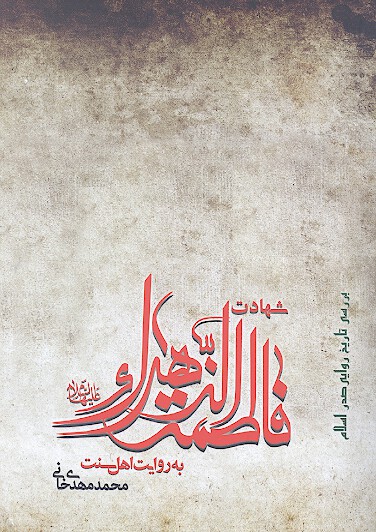 شهادت
فاطمة الزهراء
علیهاالسلام
به روایت اهل سنت
محمدمهدی خانی
بررسی تاریخ روایی صدر اسلام